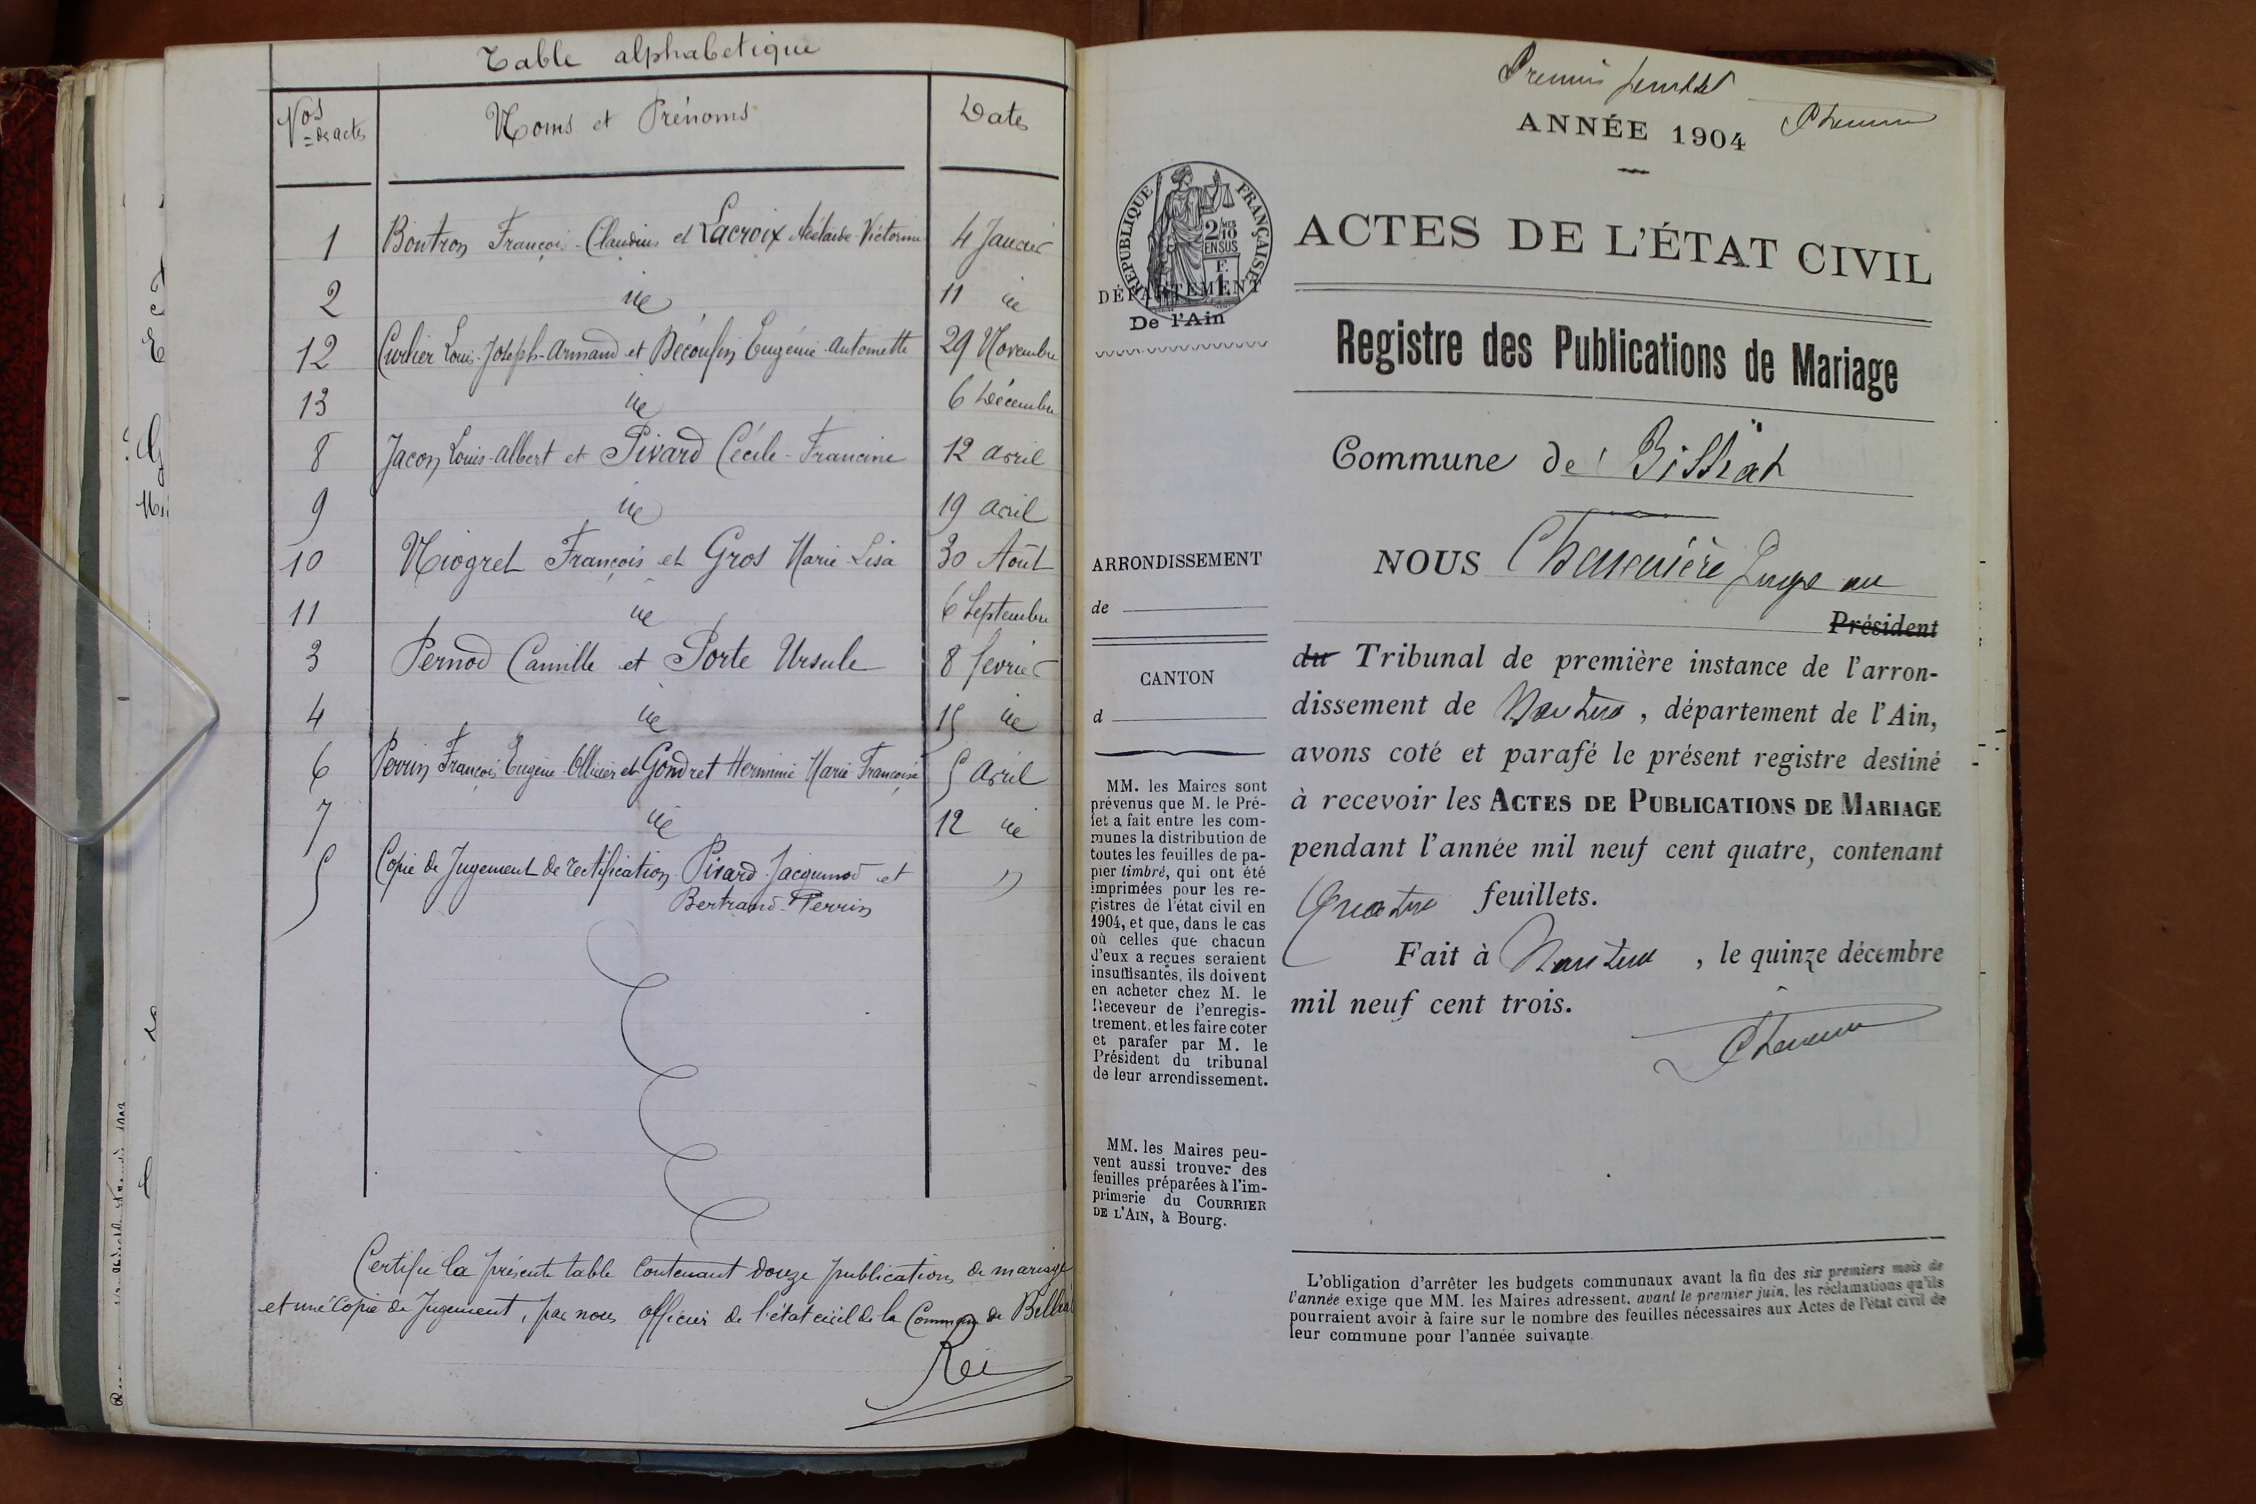 Table alphabetique
Nos des actes Noms et Prénoms Dates
1 Boutron François-Claudius et Lacroix Adélaïde-Victorine 4 Janvier
2 id 11 id
12 Curlier Louis-Joseph-Armand et Bécoufin Eugénie-Antoinette 29 Novembre
13 id 6 Décembre
8 Jacon Louis-Albert et Pivard Cécile-Francine 12 avril
9 id 19 avril
10 Niogret François et Gros Marie-Lisa 30 Août
11 id 6 Septembre
3 Pernod Camille et Porte Ursule 8 fevrier
4 id 15 id
6 Perrin François Eugène Ollivier et Gondret Herminie Marie Françoise 5 Avril
7 id 12 id
5 Copie de Jugement de rectification Pivard-Jacquinod et "
Bertrand-Perrin
Certifié la présente table contenant douze publications de mariage
et une copie de Jugement, par nous officier de l'état civil de la Commune de Billiat
Rei
Premier feuillet
ANNÉE 1904
RÉPUBLIQUE FRANÇAISE
2/10 MES
EN SUS
F.
1
DÉPARTEMENT
De l'Ain
ACTES DE L'ÉTAT CIVIL
Registre des Publications de Mariage
Commune de Billiat
NOUS Juge au
Président
du Tribunal de première instance de l'arron-
dissement de Nantua, département de l'Ain,
avons coté et parafé le présent registre destiné
à recevoir les ACTES DE PUBLICATIONS DE MARIAGE
pendant l'année mil neuf cent quatre, contenant
Quatre feuillets.
Fait à Nantua, le quinze décembre
mil neuf cent trois.
ARRONDISSEMENT
de
CANTON
d
MM. les Maires sont
prévenus que M. le Pré-
fet a fait entre les com-
munes la distribution de
toutes les feuilles de pa-
pier timbré, qui ont été
imprimées pour les re-
gistres de l'état civil en
1904, et que, dans le cas
où celles que chacun
d'eux a reçues seraient
insuffisantes, ils doivent
en acheter chez M. le
Receveur de l'enregis-
trement, et les faire coter
et parafer par M. le
Président du tribunal
de leur arrondissement.
MM. les Maires peu-
vent aussi trouver des
feuilles préparées à l'im-
primerie du COURRIER
DE L'AIN, à Bourg.
L'obligation d'arrêter les budgets communaux avant la fin des six premiers mois de
l'année exige que MM. les Maires adressent, avant le premier juin, les réclamations qu'ils
pourraient avoir à faire sur le nombre des feuilles nécessaires aux Actes de l'état civil de
leur commune pour l'année suivante.